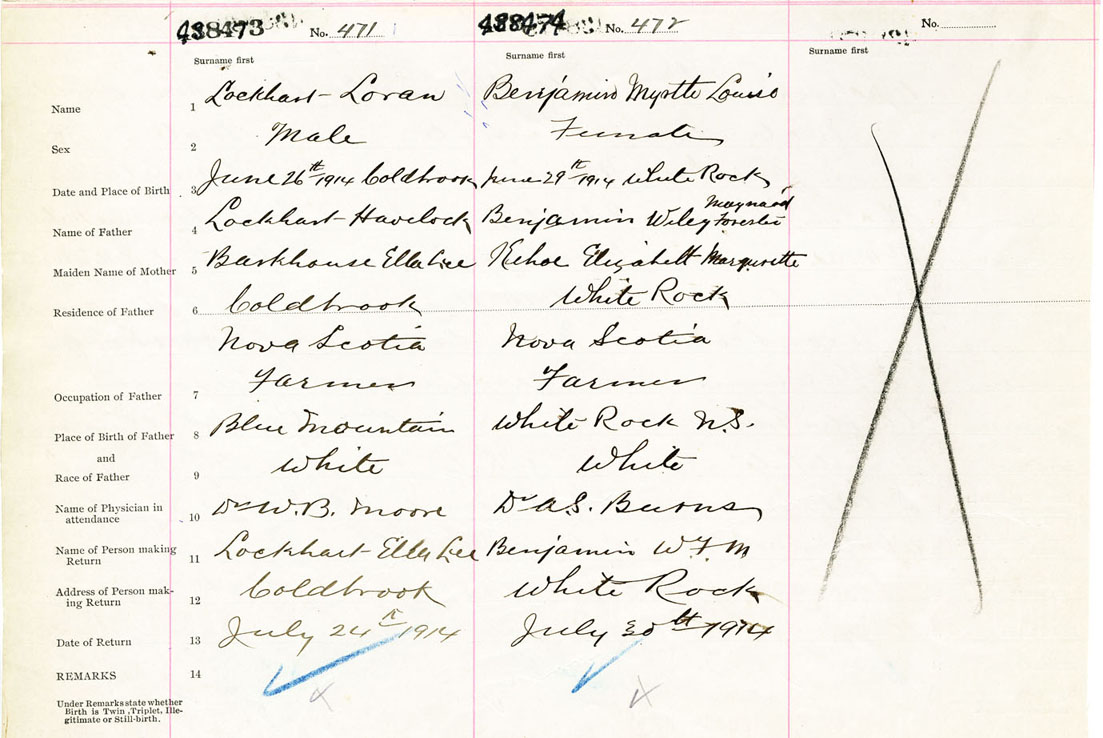 438473 No. 471 438474 No. 472 No.
Surname first Surname first Surname first
Name 1 Lockhart Loran Benjamin Myrtle Louise
Sex 2 Male Female
Date and Place of Birth 3 June 26th 1914 Coldbrook June 29th 1914 White Rock
Maynard
Name of Father 4 Lockhart Havelock Benjamin Wiley Forester
Maiden Name of Mother 5 Barkhouse Ella Lee Kehoe Elizabeth Margurette
Residence of Father 6 Coldbrook White Rock
Nova Scotia Nova Scotia
Occupation of Father 7 Farmer Farmer
Place of Birth of Father 8 Blue Mountain White Rock N.S.
and
Race of Father 9 White White
Name of Physician in
attendance 10 Dr W.B. Moore Dr A.S. Burns
Name of Person making
Return 11 Lockhart Ella Lee Benjamin W F M
Address of Person mak-
ing Return 12 Coldbrook White Rock
Date of Return 13 July 24th 1914 July 30th 1914
REMARKS 14
Under Remarks state whether
Birth is Twin, Triplet, Ille-
gitimate or Still-birth.